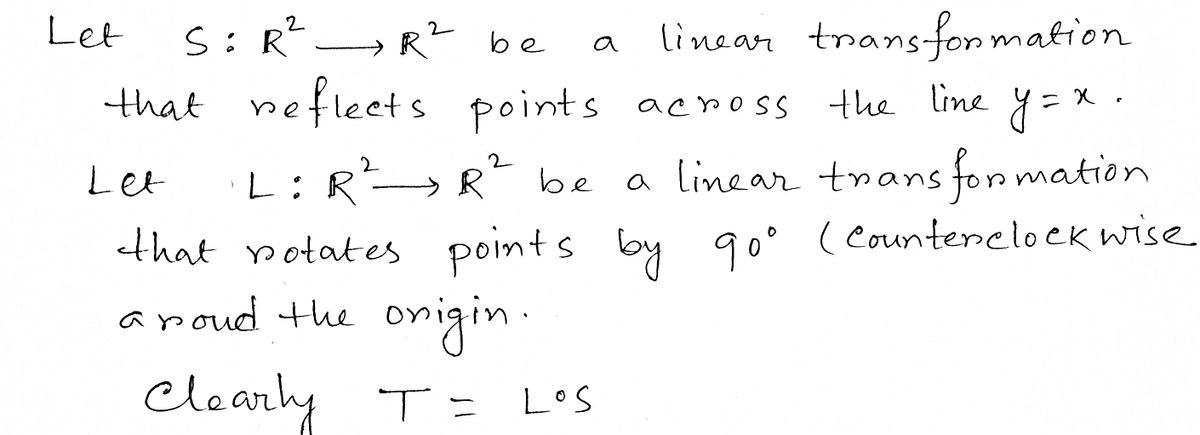 Let S : R² → R² be a linear transformation
that reflects points across the line y = x .
Let L : R² → R² be a linear transformation
that rotates points by 90° ( Counterclockwise
aroud the origin .
Clearly T = L∘S